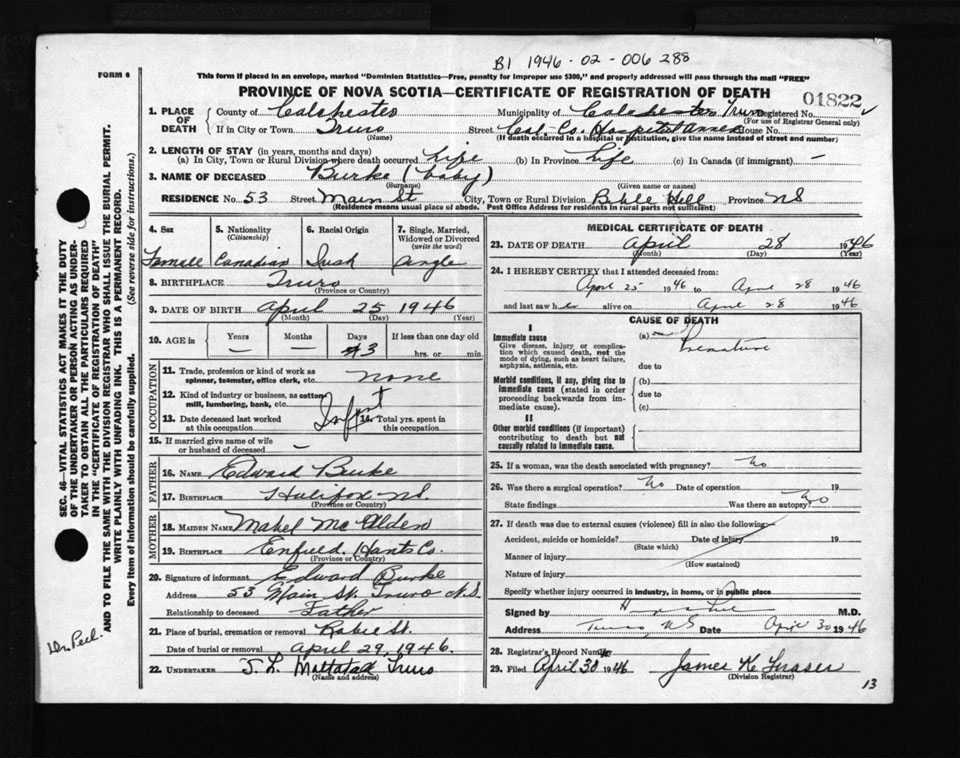 B1 1946-02-006288
FORM 6
This form if placed in an envelope, marked "Dominion Statistics—Free, penalty for improper use $300," and properly addressed will pass through the mail "FREE"
PROVINCE OF NOVA SCOTIA—CERTIFICATE OF REGISTRATION OF DEATH
01822
SEC. 46—VITAL STATISTICS ACT MAKES IT THE DUTY
OF THE UNDERTAKER OR PERSON ACTING AS UNDER-
TAKER TO OBTAIN ALL THE PARTICULARS REQUIRED
IN THE "CERTIFICATE OF REGISTRATION OF DEATH"
AND TO FILE THE SAME WITH THE DIVISION REGISTRAR WHO SHALL ISSUE THE BURIAL PERMIT.
WRITE PLAINLY WITH UNFADING INK. THIS IS A PERMANENT RECORD.
Every item of information should be carefully supplied. (See reverse side for instructions.)
Dr. Peel.
1. PLACE OF DEATH
County of Colchester Municipality of Colchester Truro Registered No.
(For use of Registrar General only)
If in City or Town Truro Street Col. Co. Hospital Annex House No.
(Name) (If death occurred in a hospital or institution, give name instead of street and number)
2. LENGTH OF STAY (in years, months and days)
(a) In City, Town or Rural Division where death occurred Life (b) In Province Life (c) In Canada (if immigrant) —
3. NAME OF DECEASED Burke (baby)
(Surname) (Given name or names)
RESIDENCE No. 53 Street Main St City, Town or Rural Division Bible Hill Province NS
(Residence means usual place of abode. Post Office Address for residents in rural parts not sufficient)
4. Sex 5. Nationality (Citizenship) 6. Racial Origin 7. Single, Married, Widowed or Divorced (write the word)
Female Canadian Irish Single
8. BIRTHPLACE Truro
(Province or Country)
9. DATE OF BIRTH April 25 1946
(Month) (Day) (Year)
10. AGE in Years Months Days If less than one day old
— — 3 hrs. or min.
OCCUPATION
11. Trade, profession or kind of work as spinner, teamster, office clerk, etc. none
12. Kind of industry or business, as cotton mill, lumbering, bank, etc.
13. Date deceased last worked at this occupation Infant 14. Total yrs. spent in this occupation
15. If married give name of wife or husband of deceased —
FATHER
16. NAME Edward Burke
17. BIRTHPLACE Halifax NS.
(Province or Country)
MOTHER
18. MAIDEN NAME Mabel Mc Alden
19. BIRTHPLACE Enfield. Hants Co.
(Province or Country)
20. Signature of informant Edward Burke
Address 53 Main St. Truro N.S.
Relationship to deceased Father
21. Place of burial, cremation or removal Robie St.
Date of burial or removal April 29, 1946.
22. UNDERTAKER J. L. Mattatall Truro
(Name and address)
MEDICAL CERTIFICATE OF DEATH
23. DATE OF DEATH April 28 1946
(Month) (Day) (Year)
24. I HEREBY CERTIFY that I attended deceased from:
April 25 1946 to April 28 1946
and last saw her alive on April 28 1946
CAUSE OF DEATH
I
Immediate cause
Give disease, injury or complication which caused death, not the mode of dying, such as heart failure, asphyxia, asthenia, etc.
(a) Premature
due to
Morbid conditions, if any, giving rise to immediate cause (stated in order proceeding backwards from immediate cause).
(b)
due to
(c)
II
Other morbid conditions (if important) contributing to death but not causally related to immediate cause.
25. If a woman, was the death associated with pregnancy? No
26. Was there a surgical operation? No Date of operation 19
State findings Was there an autopsy? No
27. If death was due to external causes (violence) fill in also the following:—
Accident, suicide or homicide? Date of injury 19
(State which)
Manner of injury
(How sustained)
Nature of injury
Specify whether injury occurred in industry, in home, or in public place
Signed by M.D.
Address Truro, NS Date April 30 1946
28. Registrar's Record Number
29. Filed April 30 1946 James K Fraser
(Division Registrar)
13